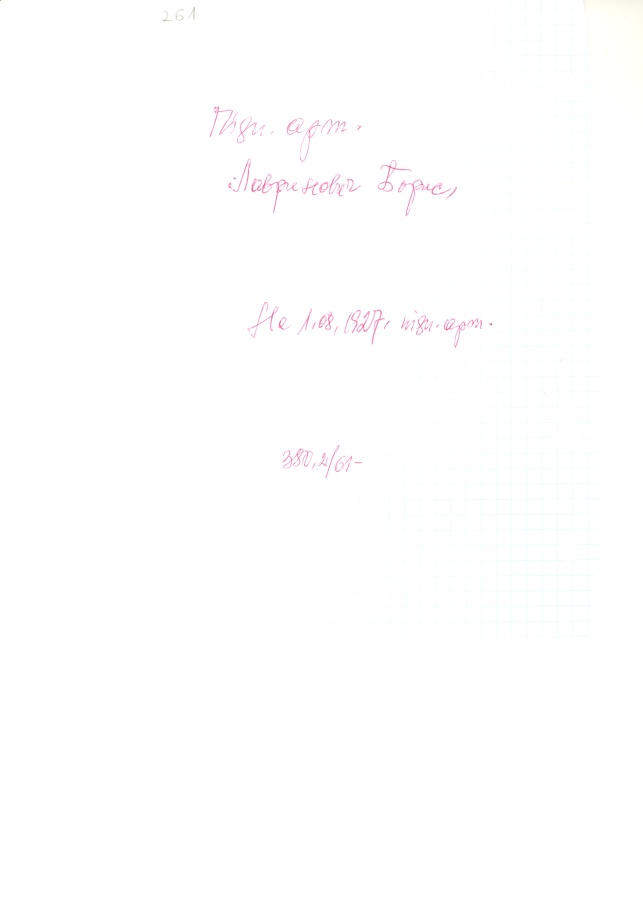 261
Підп. арт.
Лавринович Борис,
На 1.08.1927. підп. арт.
380.2/61-